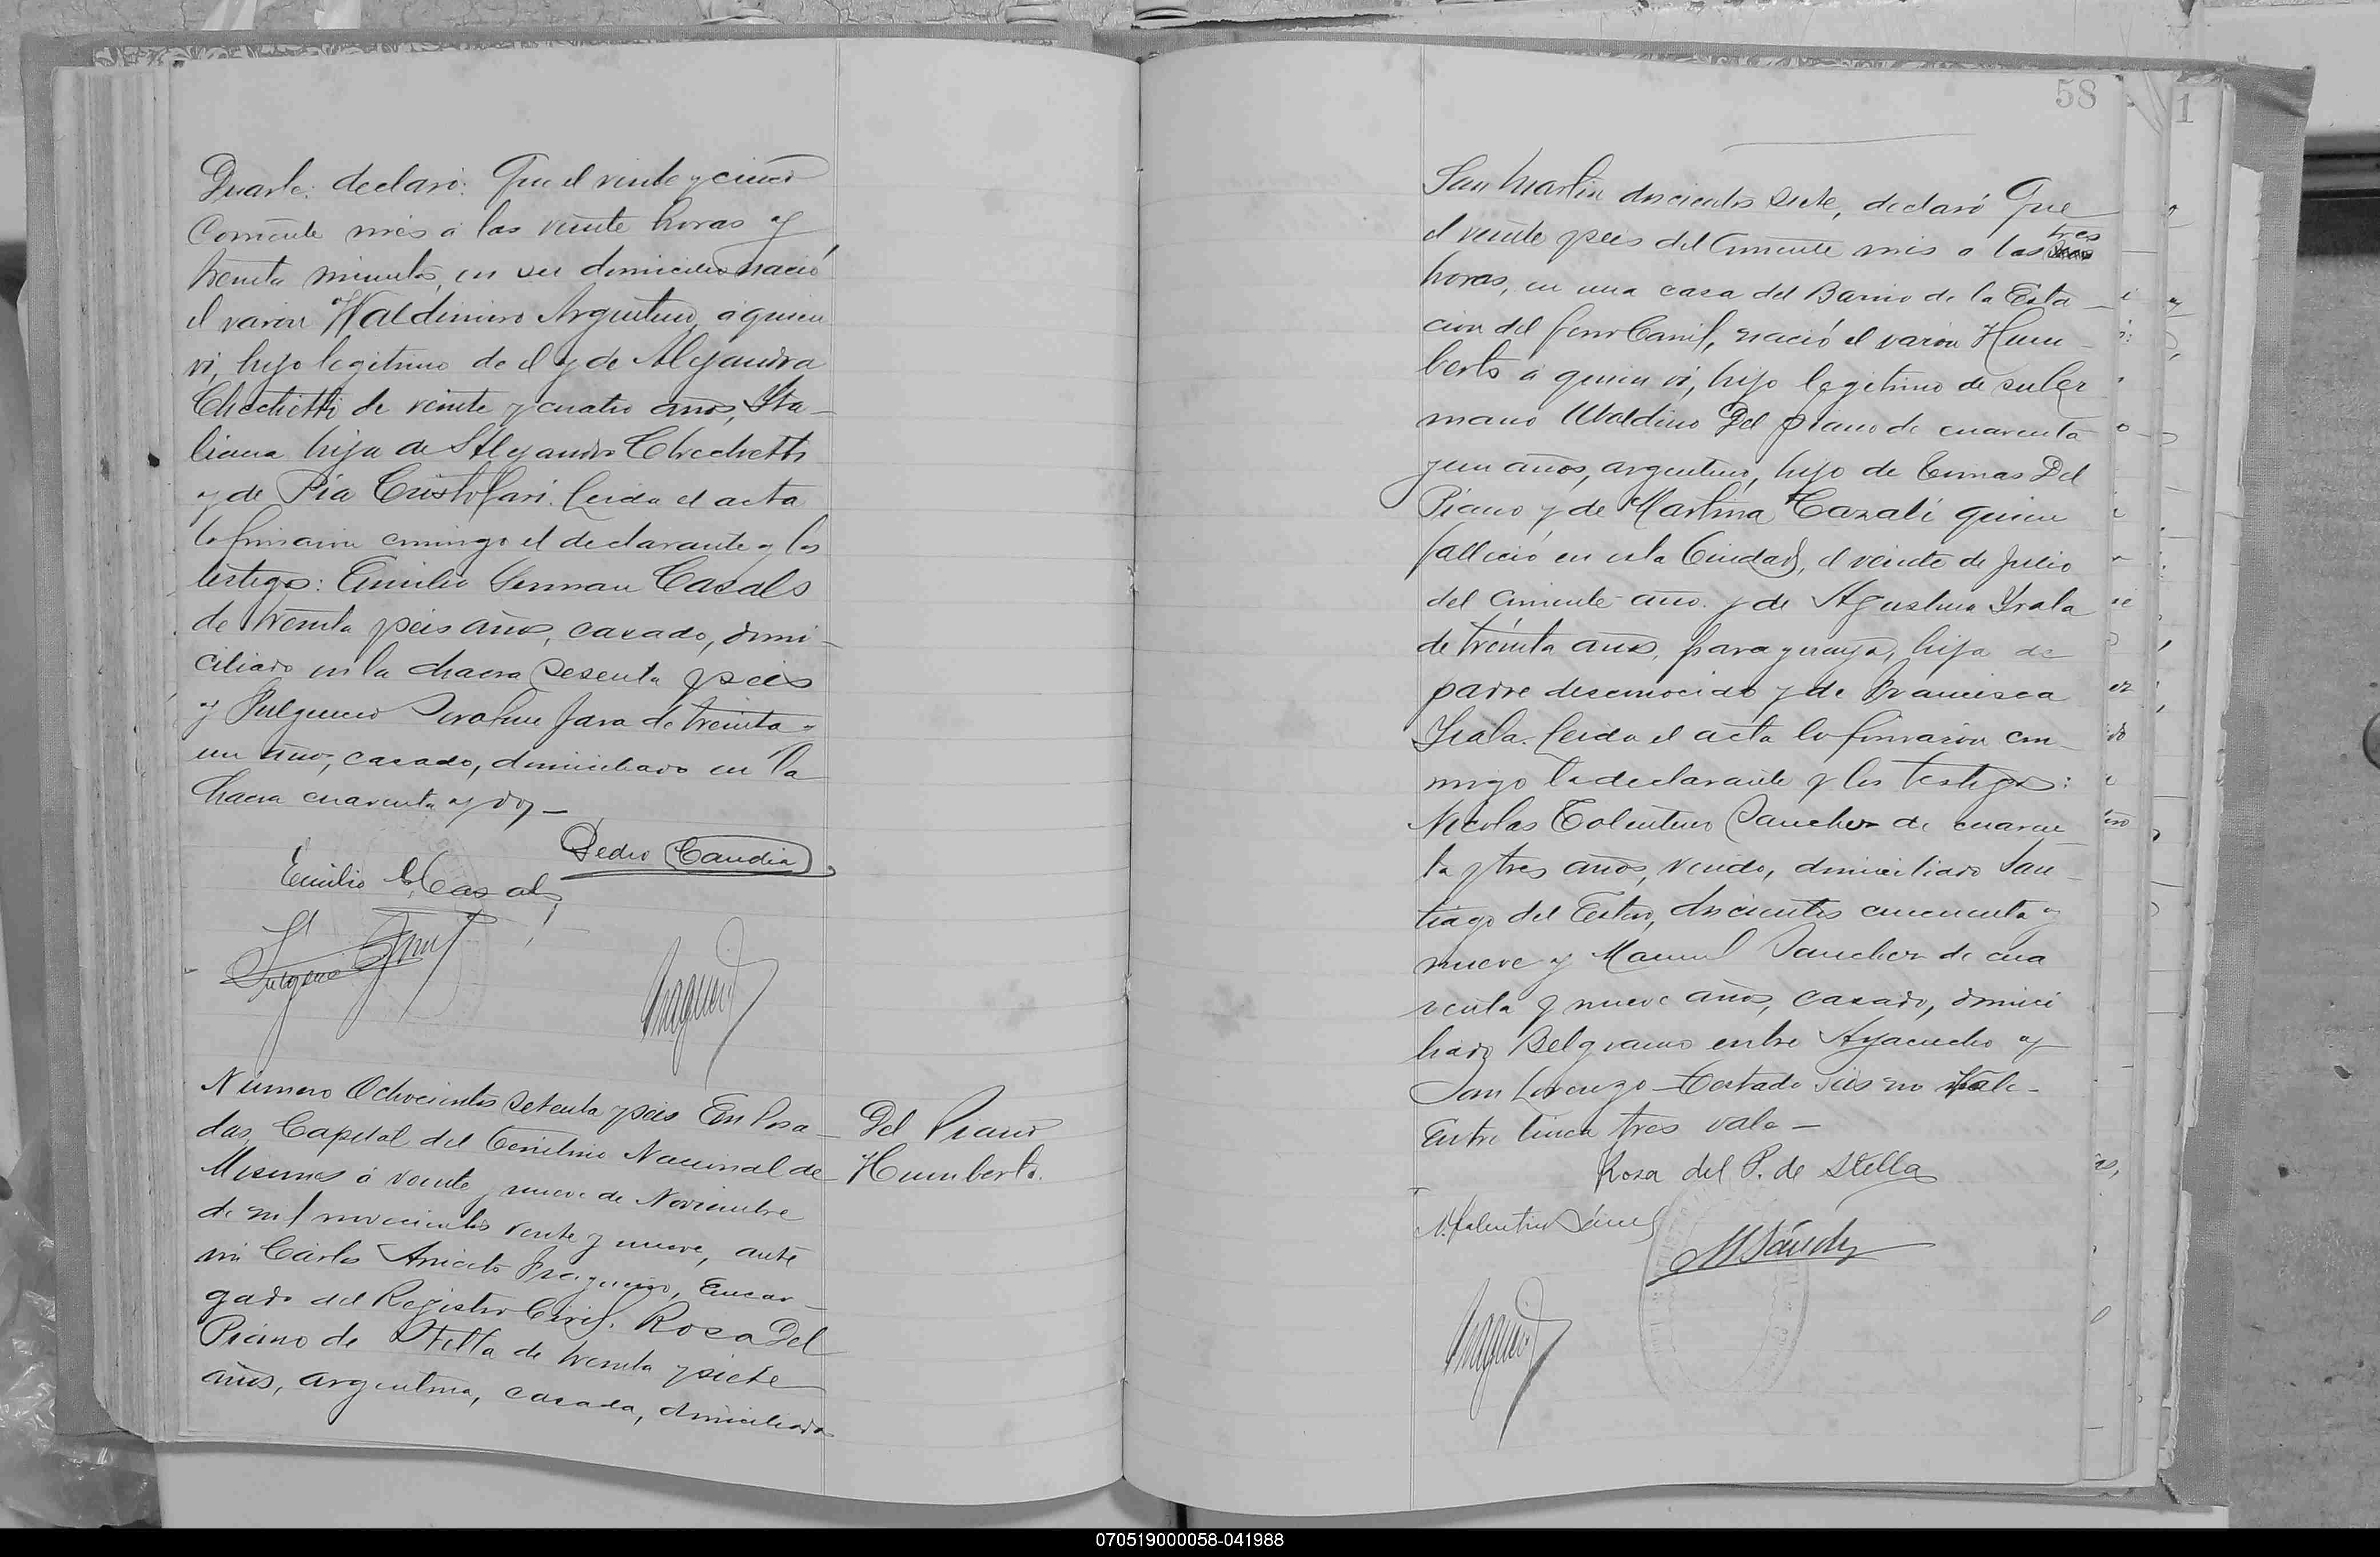 Duarte: declaró: Que el veinte y cinco
Corriente mes á las veinte horas y
treinta minutos, en su domicilio nació
el varon Waldimiro Argentino, á quien
vi, hijo legitimo de el y de Alejandra
Chechetti de veinte y cuatro años, Ita-
liana hija de Alejandro Chechetti
y de Pia Cristofari. Leida el acta
la firmaron conmigo el declarante y los
testigos: Emilio German Casals
de treinta y seis años, casado, domi-
ciliado en la chacra sesenta y seis
y Fulgencio Serafin Jara de treinta y
un años, casado, domiciliado en la
chacra cuarenta y dos—
Pedro Candia
Emilio G. Casals
Fulgencio
Número Ochocientos setenta y seis En Posa-
das, Capital del Territorio Nacional de
Misiones á veinte y nueve de Noviembre
de mil novecientos veinte y nueve, ante
mi Cárlos Aniceto Fragueiro, Encar-
gado del Registro Civil. Rosa Del
Piano de Stella de treinta y siete
años, argentina, casada, domiciliada
Del Piano
Humberto.
58
1
San Martin doscientos siete, declaró Que
tres
el veinte y seis del Corriente mes á las
horas, en una casa del Barrio de la Esta-
cion del Ferro Carril, nació el varon Hum-
berto á quien vi, hijo legitimo de su her
mano Ubaldino Del Piano de cuarenta
y un años, argentino, hijo de Tomas Del
Piano y de Martina Cazali quien
falleció en esta Ciudad, el veinte de Julio
del corriente año. y de Agustina Irala
de treinta años, paraguaya, hija de
padre desconocido y de Francisca
Irala. Leida el acta la firmaron con-
migo la declarante y los testigos:
Nicolas Tolentino Sanchez de cuaren-
ta y tres años, viudo, domiciliado San-
tiago del Estero, doscientos cincuenta y
nueve y Manuel Sanchez de cua
renta y nueve años, casado, domici
liado Belgrano entre Ayacucho y
San Lorenzo—Testado seis no vale—
Entre linea tres vale—
Rosa del P. de Stella
N. Tolentino Sánchez
M Sánchez
070519000058-041988